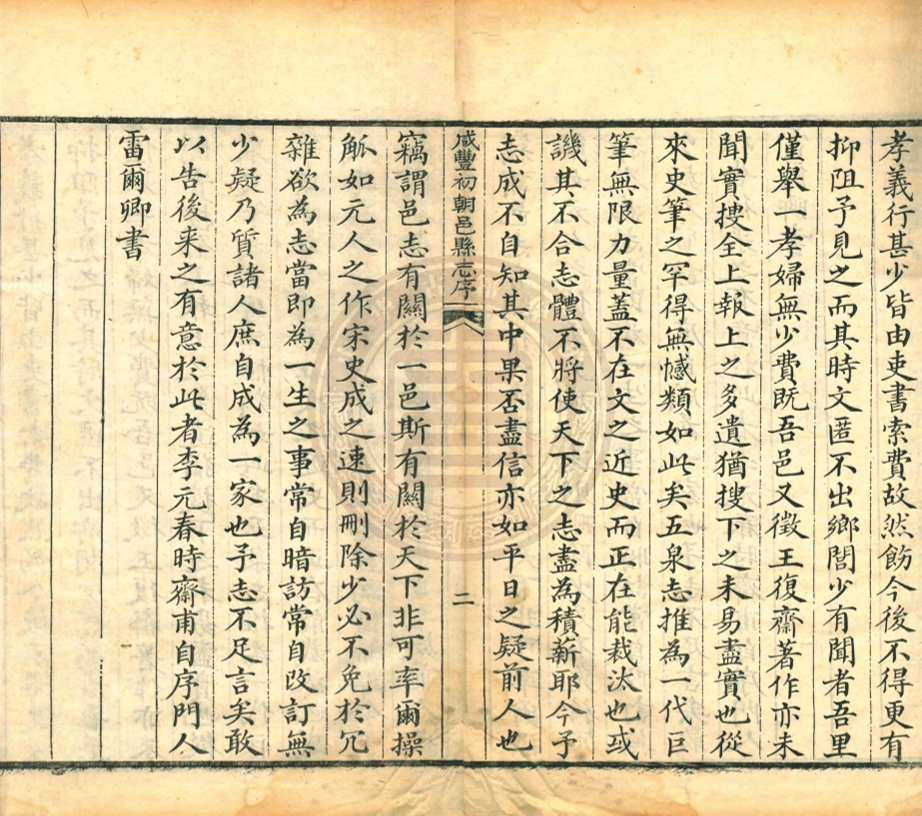 孝義行甚少皆由吏書索費故然飭今後不得更有
抑阻予見之而其時文匿不出鄉閭少有聞者吾里
僅舉一孝婦無少費既吾邑又徵王復齋著作亦未
聞實搜全上報上之多遺猶搜下之未易盡實也從
來史筆之罕得無憾類如此矣五泉志推為一代巨
筆無限力量蓋不在文之近史而正在能裁汰也或
譏其不合志體不將使天下之志盡為積薪耶今予
志成不自知其中果否盡信亦如平日之疑前人也
咸豐初朝邑縣志序
二
竊謂邑志有關於一邑斯有關於天下非可率爾操
觚如元人之作宋史成之速則刪除少必不免於冗
雜欲為志當即為一生之事常自暗訪常自改訂無
少疑乃質諸人庶自成為一家也予志不足言矣敢
以告後来之有意於此者李元春時齋甫自序門人
雷爾卿書